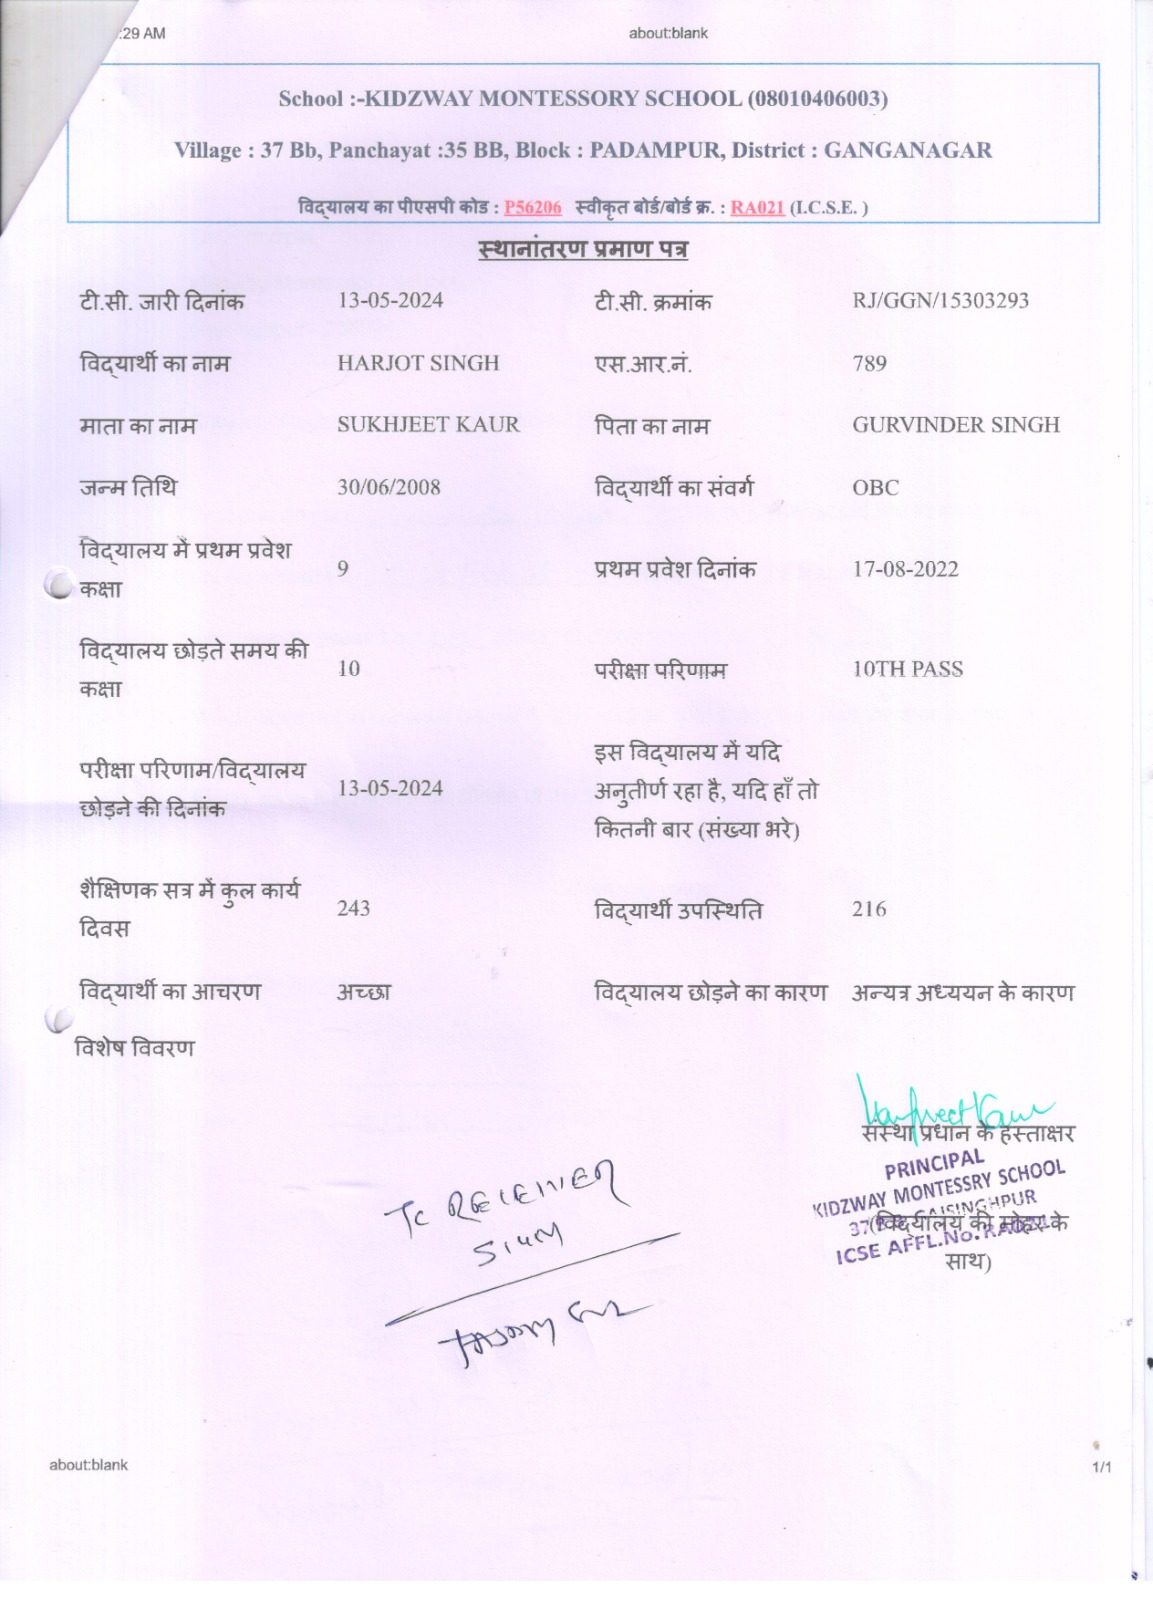 :29 AM about:blank
School :-KIDZWAY MONTESSORY SCHOOL (08010406003)
Village : 37 Bb, Panchayat :35 BB, Block : PADAMPUR, District : GANGANAGAR
विद्यालय का पीएसपी कोड : P56206 स्वीकृत बोर्ड/बोर्ड क्र. : RA021 (I.C.S.E. )
स्थानांतरण प्रमाण पत्र
टी.सी. जारी दिनांक 13-05-2024 टी.सी. क्रमांक RJ/GGN/15303293
विद्यार्थी का नाम HARJOT SINGH एस.आर.नं. 789
माता का नाम SUKHJEET KAUR पिता का नाम GURVINDER SINGH
जन्म तिथि 30/06/2008 विद्यार्थी का संवर्ग OBC
विद्यालय में प्रथम प्रवेश
कक्षा
9 प्रथम प्रवेश दिनांक 17-08-2022
विद्यालय छोड़ते समय की
कक्षा
10 परीक्षा परिणाम 10TH PASS
परीक्षा परिणाम/विद्यालय
छोड़ने की दिनांक
13-05-2024
इस विद्यालय में यदि
अनुतीर्ण रहा है, यदि हाँ तो
कितनी बार (संख्या भरे)
शैक्षिणक सत्र में कुल कार्य
दिवस
243 विद्यार्थी उपस्थिति 216
विद्यार्थी का आचरण अच्छा विद्यालय छोड़ने का कारण अन्यत्र अध्ययन के कारण
विशेष विवरण
Harpreet Kaur
संस्था प्रधान के हस्ताक्षर
PRINCIPAL
KIDZWAY MONTESSRY SCHOOL
(विद्यालय की मोहर के
साथ)
ICSE AFFL.No.
TC RECEIVER
SIGN
about:blank 1/1